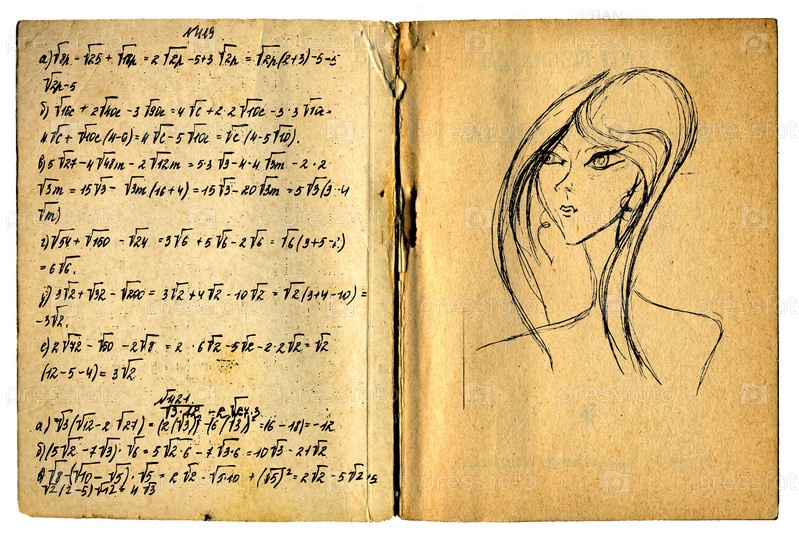 №419
а)√8p - √25 + √18p = 2√2p - 5+3 √2p = √2p(2+3)-5=5
√2p-5
б)√16c + 2√40c - 3√90c = 4√c + 2·2√10c - 3·3√10c=
4√c + √10c(4-9)=4√c - 5√10c = √c(4-5√10).
в)5√27-4√48m - 2√12m = 5·3√3-4·4√3m - 2·2
√3m = 15√3 - √3m(16+4) = 15√3 - 20√3m = 5√3(3-4
√m)
г)√54 + √150 - √24 = 3√6 + 5√6 - 2√6 = √6(3+5-2)
= 6√6.
д)3√2+√32 - √200 = 3√2+4√2 - 10√2 = √2(3+4-10) =
-3√2.
е)2√72 - √50 - 2√8 = 2·6√2-5√2-2·2√2 = √2
(12-5-4) = 3√2
№421.
√3·12 - 2√27·3
а)√3(√12-2√27) = =6-18)=-12
б)(5√2-7√3)·√6=5√2·6 - 7√3·6=10√3-21√2
в)√8-(√10-√5)·√5 = 2√2 - √5·10 + (√5)²=2√2-5√2+5
pressfoto